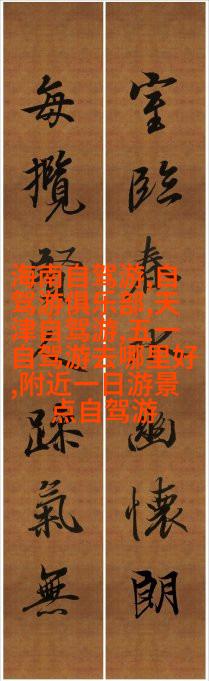 室臨春幽懷朗
每攬躁氣無
海南自驾游,自
驾游俱乐部,天
津自驾游,五一
自驾游去哪里好
,附近一日游景
点自驾游